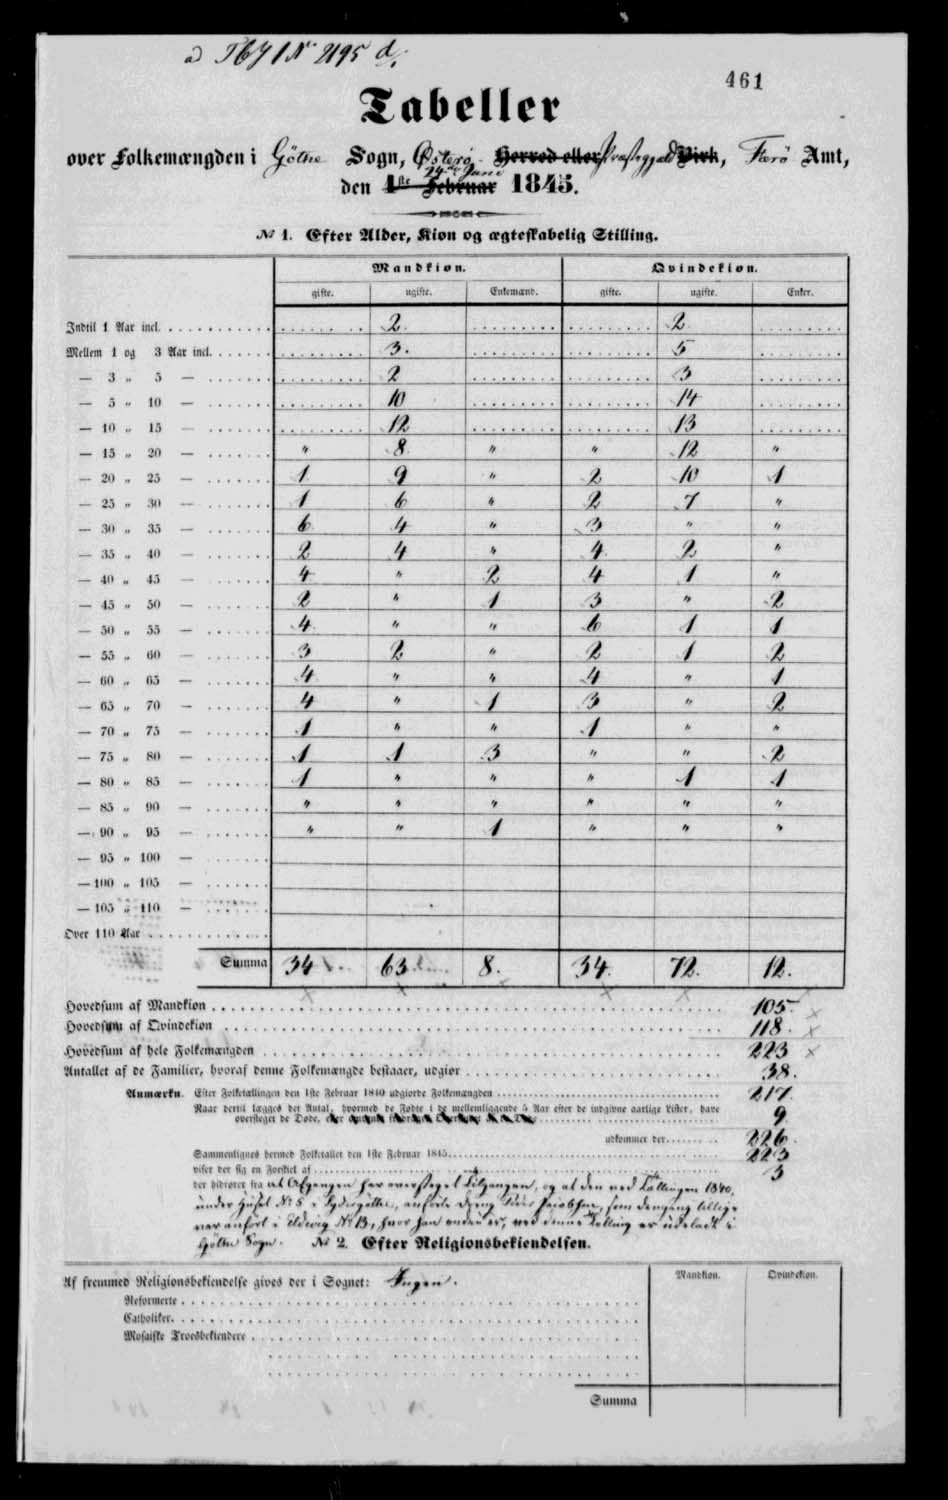 ad TbJ 1 № 2195 d/.
461
Tabeller
over Folkemængden i Göthe Sogn, Østerø Herred eller Præstegjæld Birk, Færø Amt,
24de Juni
den 1ste Februar 1845.
№ 1. Efter Alder, Kion og ægteskabelig Stilling.
Mandkion. Qvindekion.
gifte. ugifte. Enkemænd. gifte. ugifte. Enker.
Indtil 1 Aar incl. 2. 2.
Mellem 1 og 3 Aar incl. 3. 5
— 3 „ 5 — 2 3
— 5 „ 10 — 10 14
— 10 „ 15 — 12 13
— 15 „ 20 — " 8 " " 12 "
— 20 „ 25 — 1 9 " 2 10 1
— 25 „ 30 — 1 6 " 2 7 "
— 30 „ 35 — 6 4 " 3 " "
— 35 „ 40 — 2 4 " 4 2 "
— 40 „ 45 — 4 " 2 4 1 "
— 45 „ 50 — 2 " 1 3 " 2
— 50 „ 55 — 4 " " 6 1 1
— 55 „ 60 — 3 2 " 2 1 2
— 60 „ 65 — 4 " " 4 " 1
— 65 „ 70 — 4 " 1 3 " 2
— 70 „ 75 — 1 " " 1 " "
— 75 „ 80 — 1 1 3 " " 2
— 80 „ 85 — 1 " " " 1 1
— 85 „ 90 — " " " " " "
— 90 „ 95 — " " 1 " " "
— 95 „ 100 —
— 100 „ 105 —
— 105 „ 110 —
Over 110 Aar
Summa 34 63 8. 34. 72. 12.
Hovedsum af Mandkion 105.
Hovedsum af Qvindekion 118.
Hovedsum af hele Folkemængden 223
Antallet af de Familier, hvoraf denne Folkemængde bestaaer, udgiør 38.
Anmærkn. Efter Folketællingen den 1ste Februar 1840 udgiorde Folkemængden 217.
Naar dertil lægges det Antal, hvormed de Fødte i de mellemliggende 5 Aar efter de indgivne aarlige Lister, have
oversteget de Døde, 9.
udkommer der 226.
Sammenlignes hermed Folketallet den 1ste Februar 1845 223
viser der sig en Forskiel af 3
der hidrører fra at Afgangen har oversteget Tilgangen, og at den ved Tællingen 1840,
under Huset № 5 i Sydregöthe, anførte Dreng Jacobsen, som dengang tillige
var anført i Eldevig № 13, hvor han ved denne Tælling er udeladt i
Göthe Sogn.
№ 2. Efter Religionsbekiendelsen.
Af fremmed Religionsbekiendelse gives der i Sognet: Ingen. Mandkion. Qvindekion.
Reformerte
Catholiker
Mosaiske Troesbekiendere
Summa